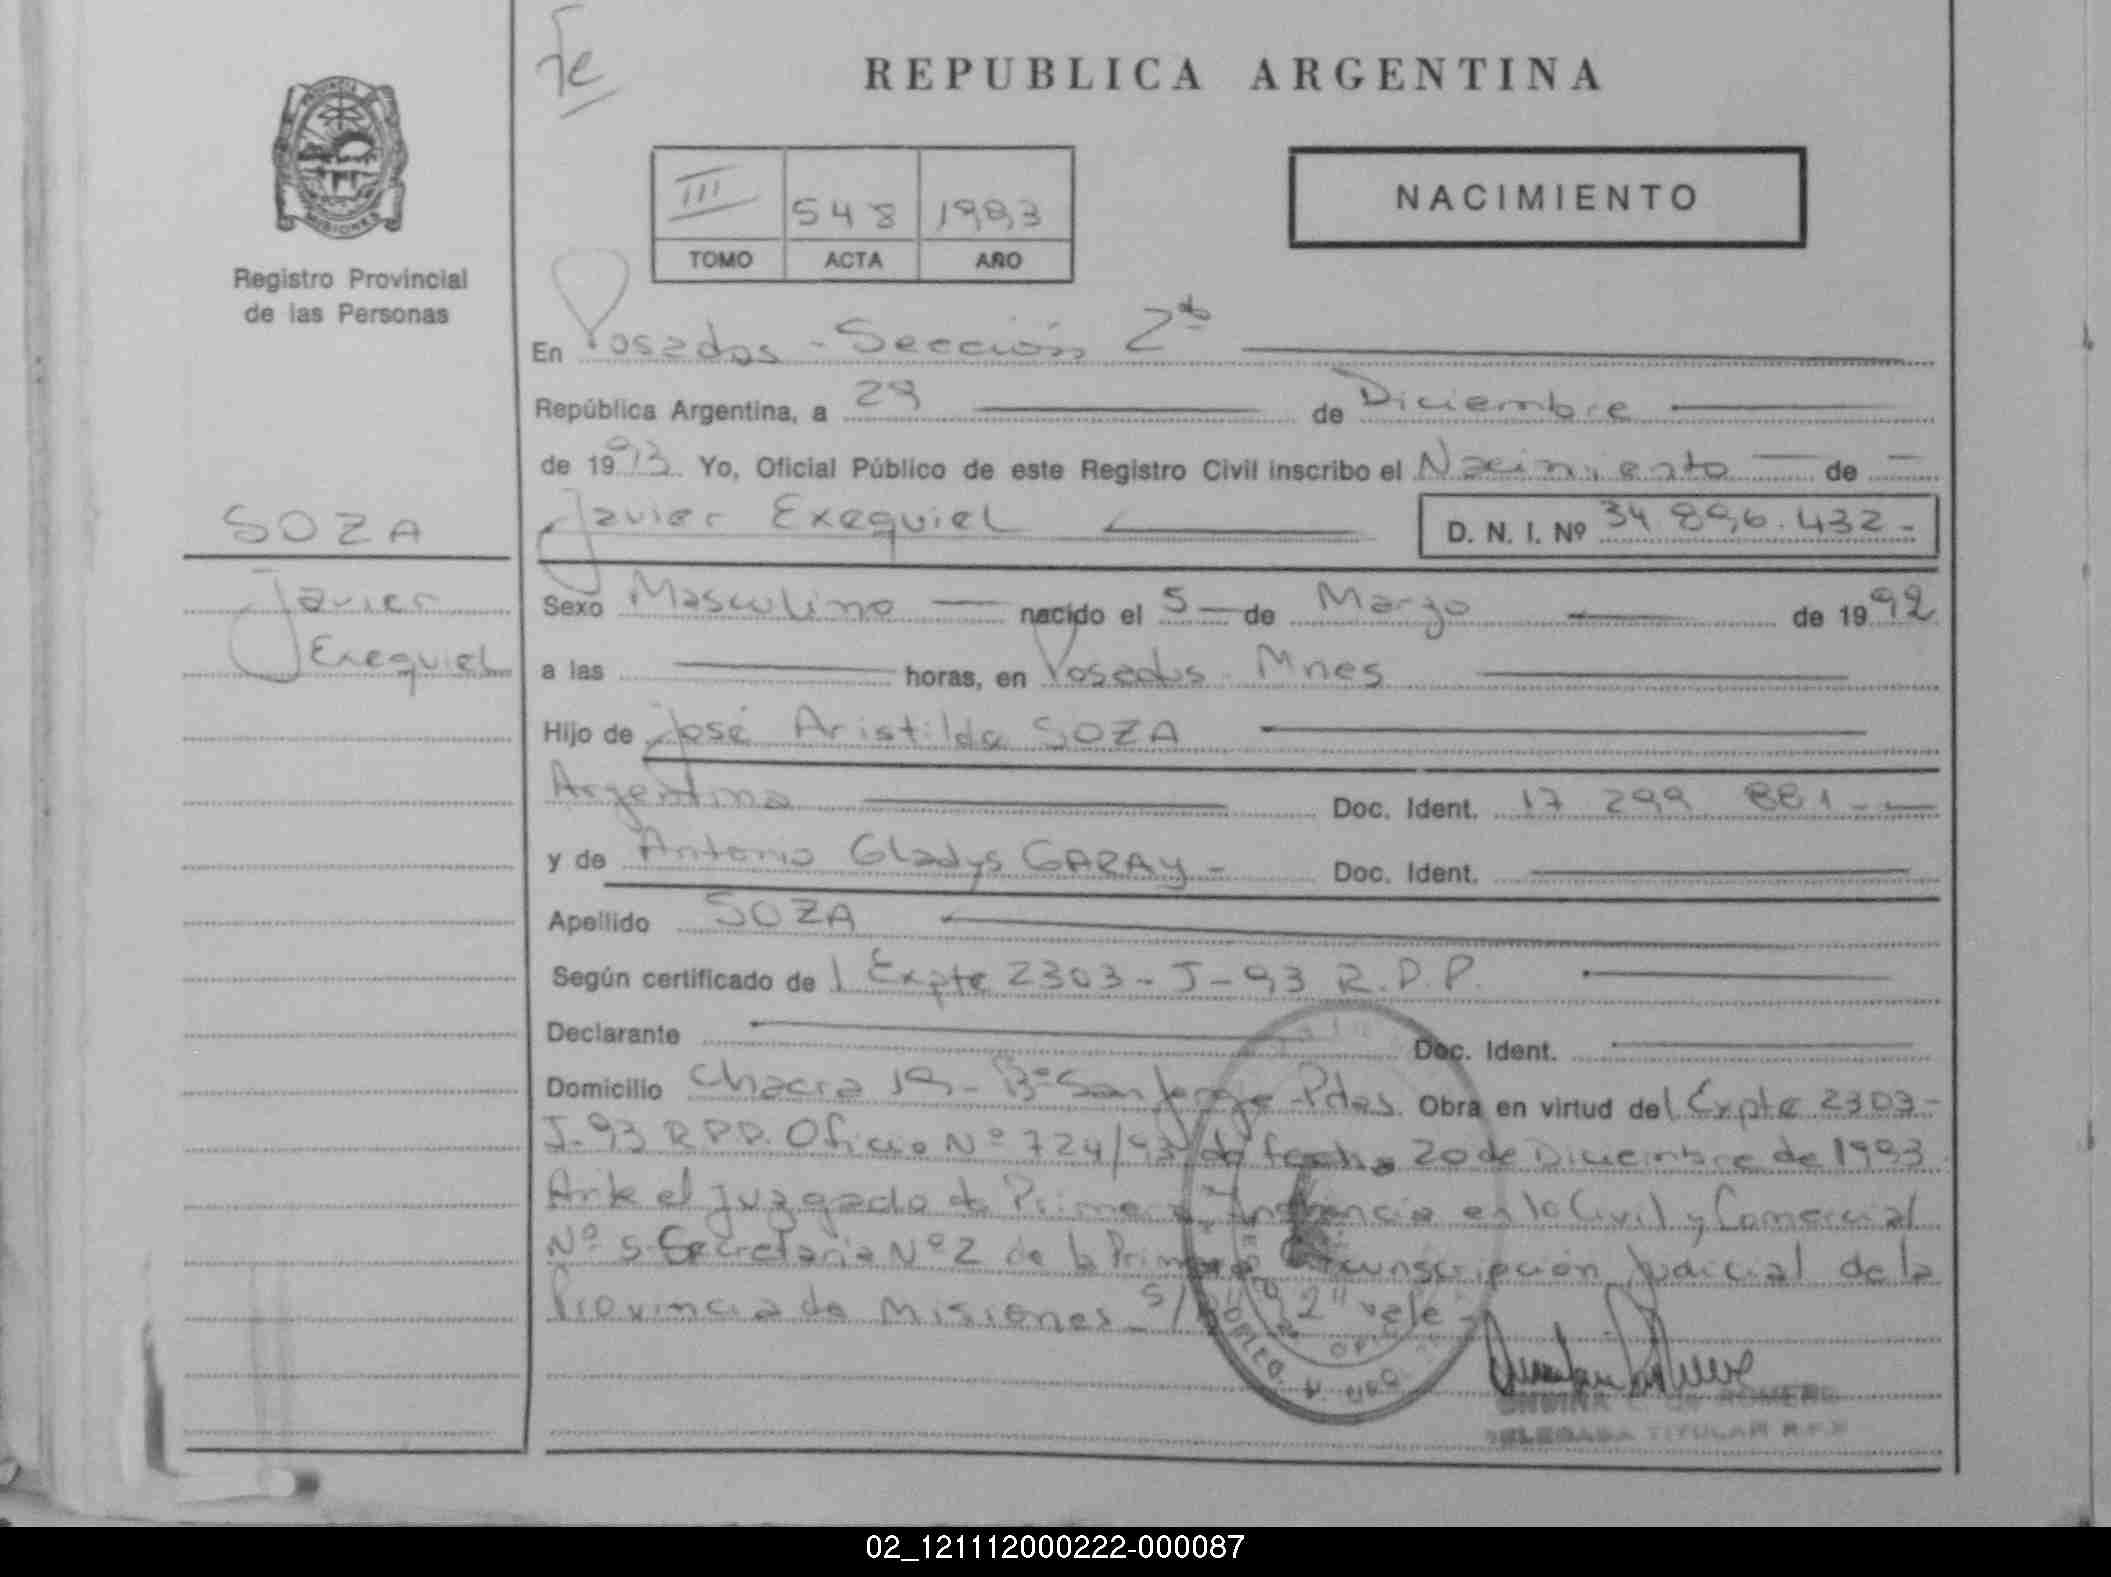 Te
REPUBLICA ARGENTINA
III 548 1993
TOMO ACTA AÑO
NACIMIENTO
PROVINCIA
MISIONES
Registro Provincial
de las Personas
SOZA
Javier
Exequiel
En Posadas - Sección 2da
República Argentina, a 29 de Diciembre
de 1993 Yo, Oficial Público de este Registro Civil inscribo el Nacimiento de
Javier Exequiel D. N. I. Nº 34 896.432-
Sexo Masculino nacido el 5 de Marzo de 1992
a las horas, en Posadas - Mnes
Hijo de José Aristildo SOZA
Argentina Doc. Ident. 17 299 881-
y de Antonia Gladys GARAY - Doc. Ident.
Apellido SOZA
Según certificado de l Expte 2303-J-93 R.P.P.
Declarante Doc. Ident.
Domicilio Chacra 19- Bº San Jorge - Pdas. Obra en virtud del Expte 2303-
J-93 R.P.P. Oficio Nº 724/93 de fecha 20 de Diciembre de 1993
Ante el Juzgado de Primera Instancia en lo Civil y Comercial
Nº 5 Secretaria Nº 2 de la Primera Circunscripción Judicial de la
Provincia de Misiones - S/R "2" vale -
ONDINA C. de ROMERO
DELEGADA TITULAR R.P.P
02_121112000222-000087